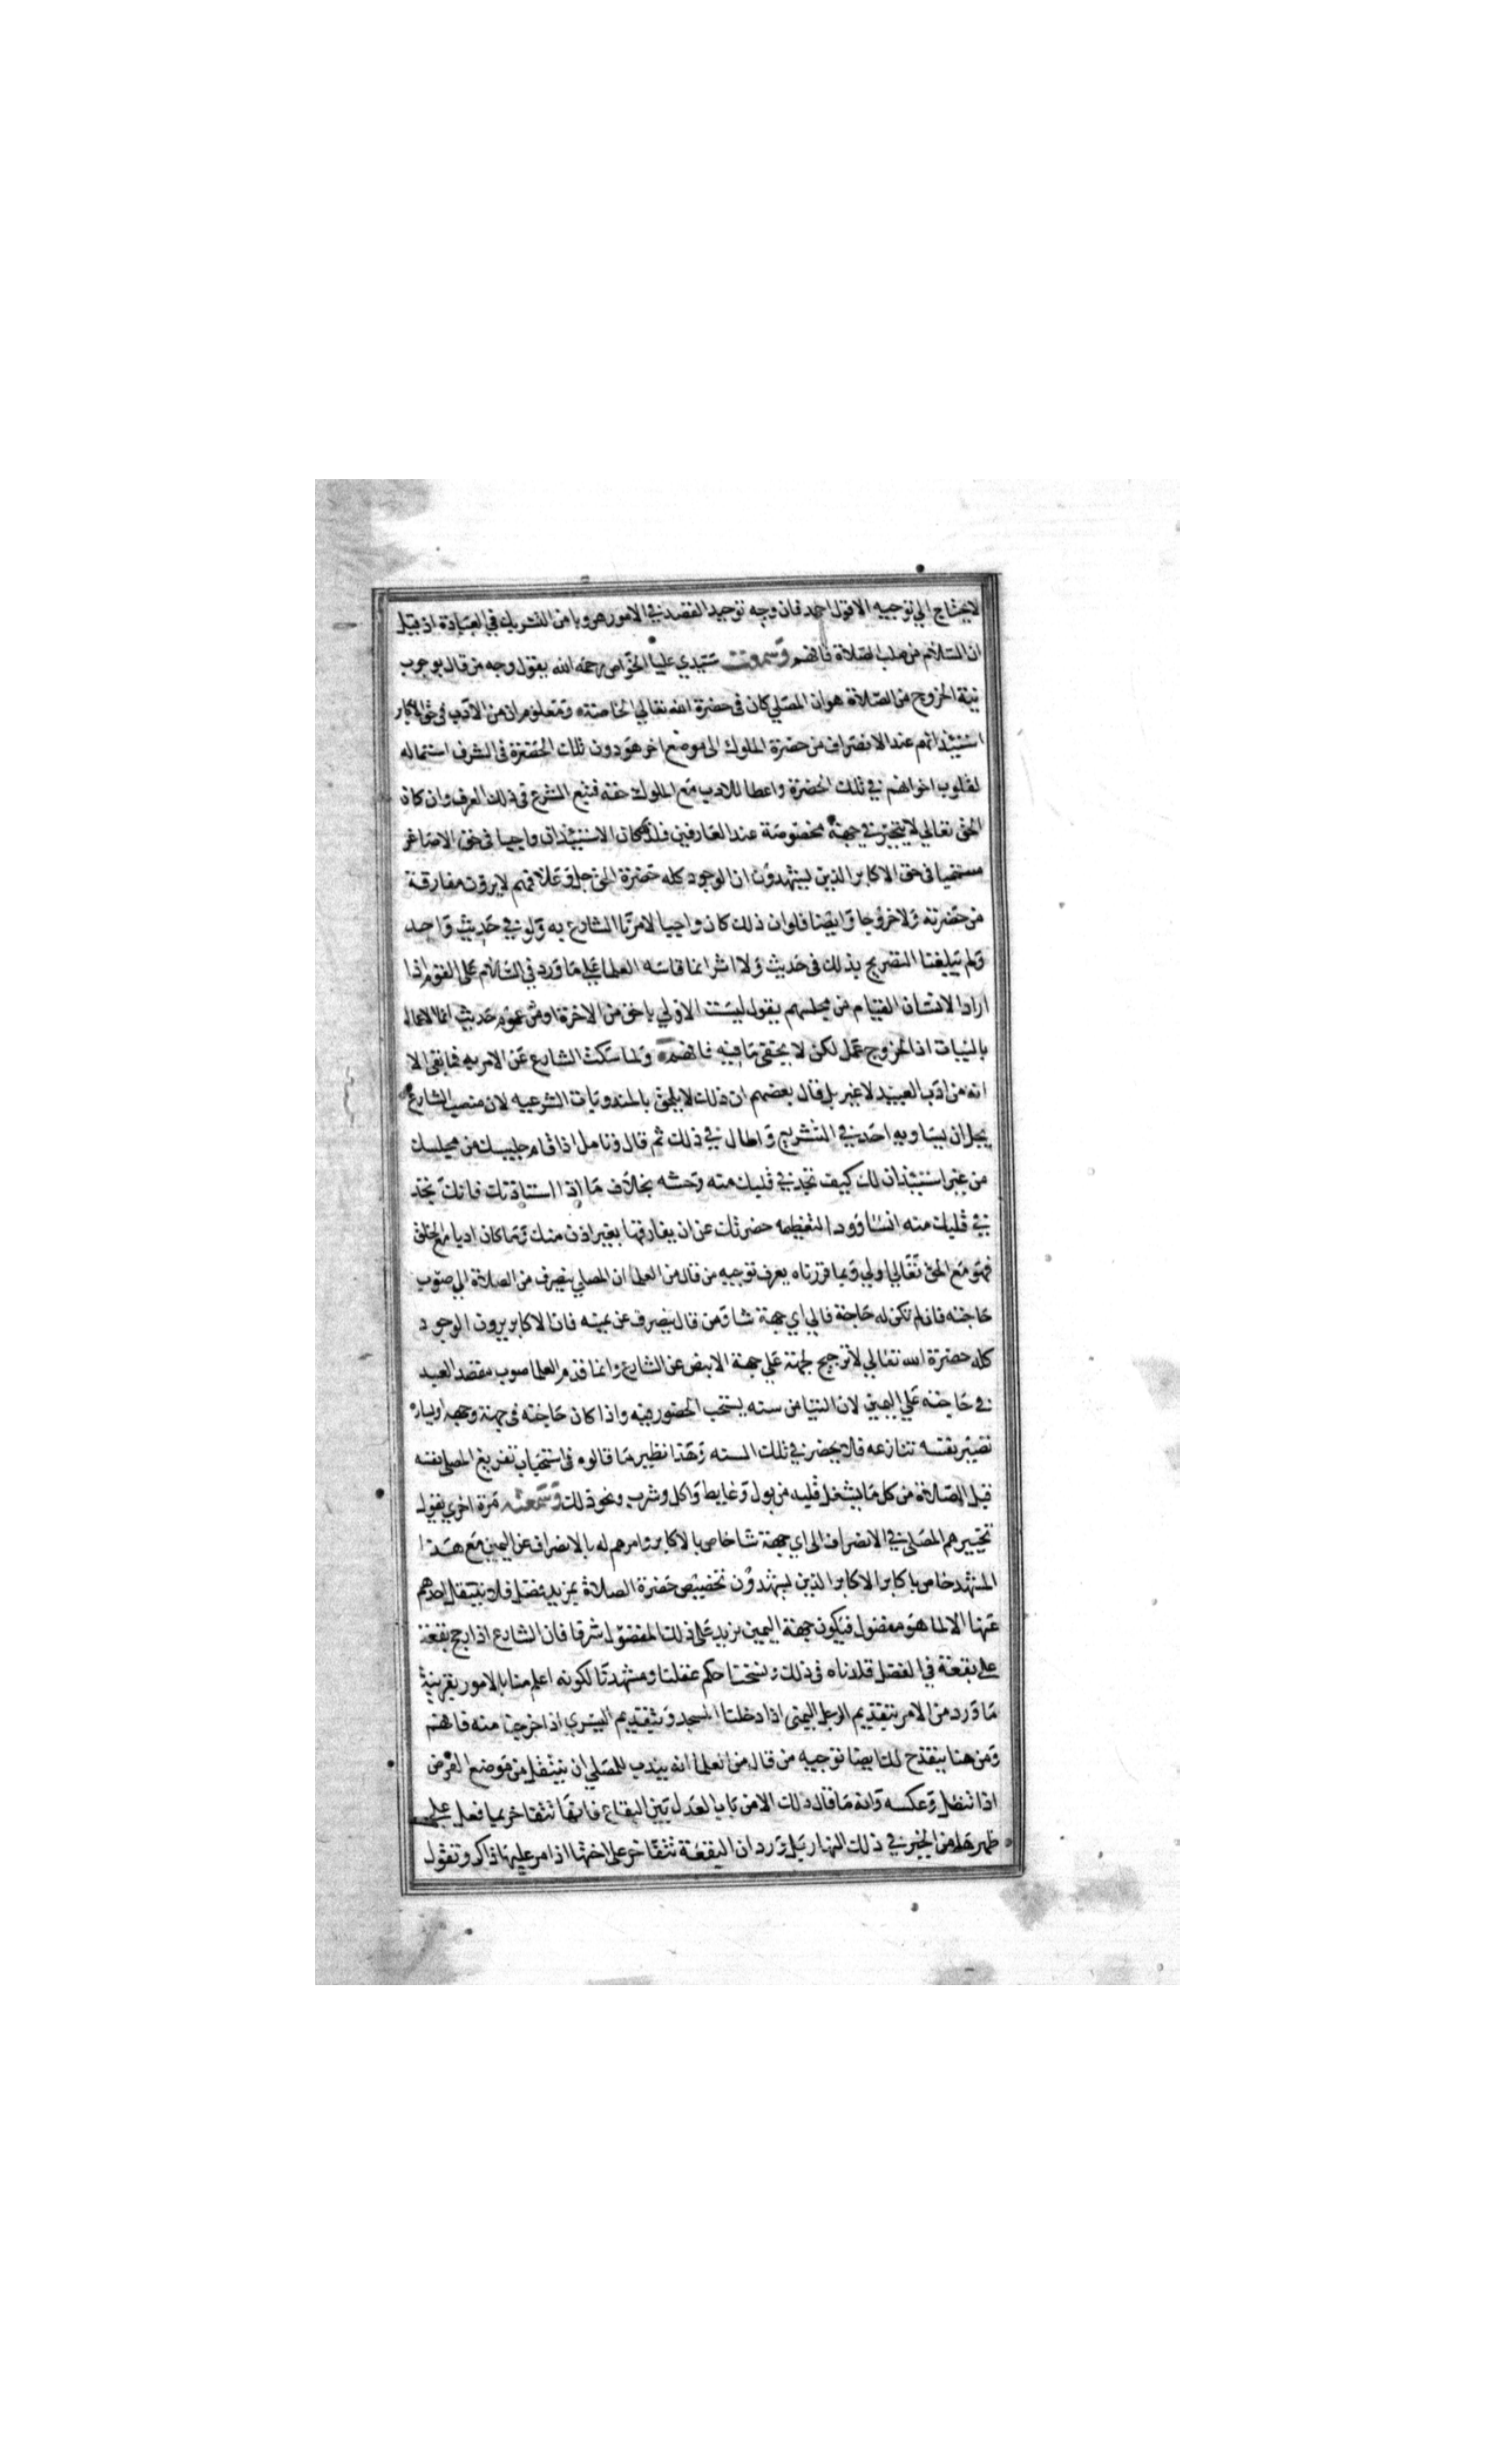 لا يحتاج الي توجيه الا قول احمد فان وجه توحيد القصد في الامور هروبا من التشريك في العبادة اذ قيل
ان السلام من صلب الصلاة فافهم وسمعت سيدي عليا الخواص رحمه الله يقول وجه من قال بوجوب
نية الخروج من الصلاة هو ان المصلي كان في حضرة الله تعالي الخاصة ومعلوم ان من الادب في حق الاكابر
استئذانهم عند الانصراف من حضرة الملوك الى موضع اخر هو دون تلك الحضرة في الشرف استمالة
لقلوب اخوانهم في تلك الحضرة واعطا للادب مع الملوك حقه فتبع الشرع في ذلك العرف وان كان
الحق تعالي لا يتحيز في جهة مخصوصة عند العارفين فلذا كان الاستئذان واجبا في حق الاصاغر
مستحبا في حق الاكابر الذين يشهدون ان الوجود كله حضرة الحق جل وعلا فهم لا يرون مفارقة
من حضرته ولا خروجا وايضا فلو ان ذلك كان واجبا لامرنا الشارع به ولو في حديث واحد
ولم يبلغنا التصريح بذلك في حديث ولا اثر انما قاسه العلما علي ما ورد في السلام على القوم اذا
اراد الانسان القيام من مجلسهم بقول ليست الاولي باحق من الاخرة او من عموم حديث انما الاعمال
بالنيات اذ الخروج عمل لكن لا يخفى ما فيه فافهم ولما سكت الشارع عن الامر به فما بقى الا
انه من ادب العبيد لا غير بل قال بعضهم ان ذلك لا يلحق بالمندوبات الشرعيه لان منصب الشارع
يجل ان يساويه احد في التشريع واطال في ذلك ثم قال وتامل اذا قام جليسك من مجلسك
من غير استئذان لك كيف تجد في قلبك منه وحشه بخلاف ما اذا استاذنك فانك تجد
في قلبك منه انسا وودا لتعظيمه حضرتك عن ان يفارقها بغير اذن منك وما كان ادبا مع الخلق
فهو مع الحق تعالي اولي وبما قررناه يعرف توجيه من قال من العلما ان المصلي ينصرف من الصلاة الي صوب
حاجته فان لم تكن له حاجة فالي اي جهة شا ومن قال ينصرف عن يمينه فان الاكابر يرون الوجود
كله حضرة الله تعالي لا ترجيح لجهة علي جهة الا بنص عن الشارع وانما قدم العلما صوب مقصد العبد
في حاجته علي اليمين لان التيامن سنه يستحب الحضور فيه واذا كان حاجته في جهة وجهه او يساره
تصير نفسه تنازعه فلا يحضر في تلك السنه وهذا نظير ما قالوه في استحباب تفريغ المصلي نفسه
قبل الصلاة من كل ما يشغل قلبه من بول وغايط واكل وشرب ونحو ذلك وسمعته مرة اخري يقول
تخييرهم المصلي في الانصراف الى اي جهة شا خاص بالاكابر وامرهم له بالانصراف عن اليمين مع هذا
المشهد خاص باكابر الاكابر الذين يشهدون تخصيص حضرة الصلاة بمزيد فضل فلا ينتقل احدهم
عنها الا لما هو مفضول فيكون جهة اليمين يزيد على ذلك المفضول شرفا فان الشارع اذا رجح بقعة
على بقعة في الفضل قلدناه في ذلك ونسخنا حكم عقلنا ومشهدنا لكونه اعلم منا بالامور بقرينة
ما ورد من الامر بتقديم الرجل اليمنى اذا دخلنا المسجد وبتقديم اليسري اذا خرجنا منه فافهم
ومن هنا ينقدح لك ايضا توجيه من قال من العلما انه يندب للمصلي ان ينتقل من موضع الفرض
اذا تنفل وعكسه وانه ما قال ذلك الا من باب العدل بين البقاع فانها تتفاخر بما فعل على
ظهرها من الخير في ذلك النهار بل ورد ان البقعة تتفاخر على اختها اذا مر عليها ذاكر وتقول